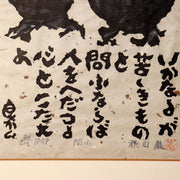 いかなるが
苦しきもの
と
問ふならば
人をへだつる
心とこたへ
よ